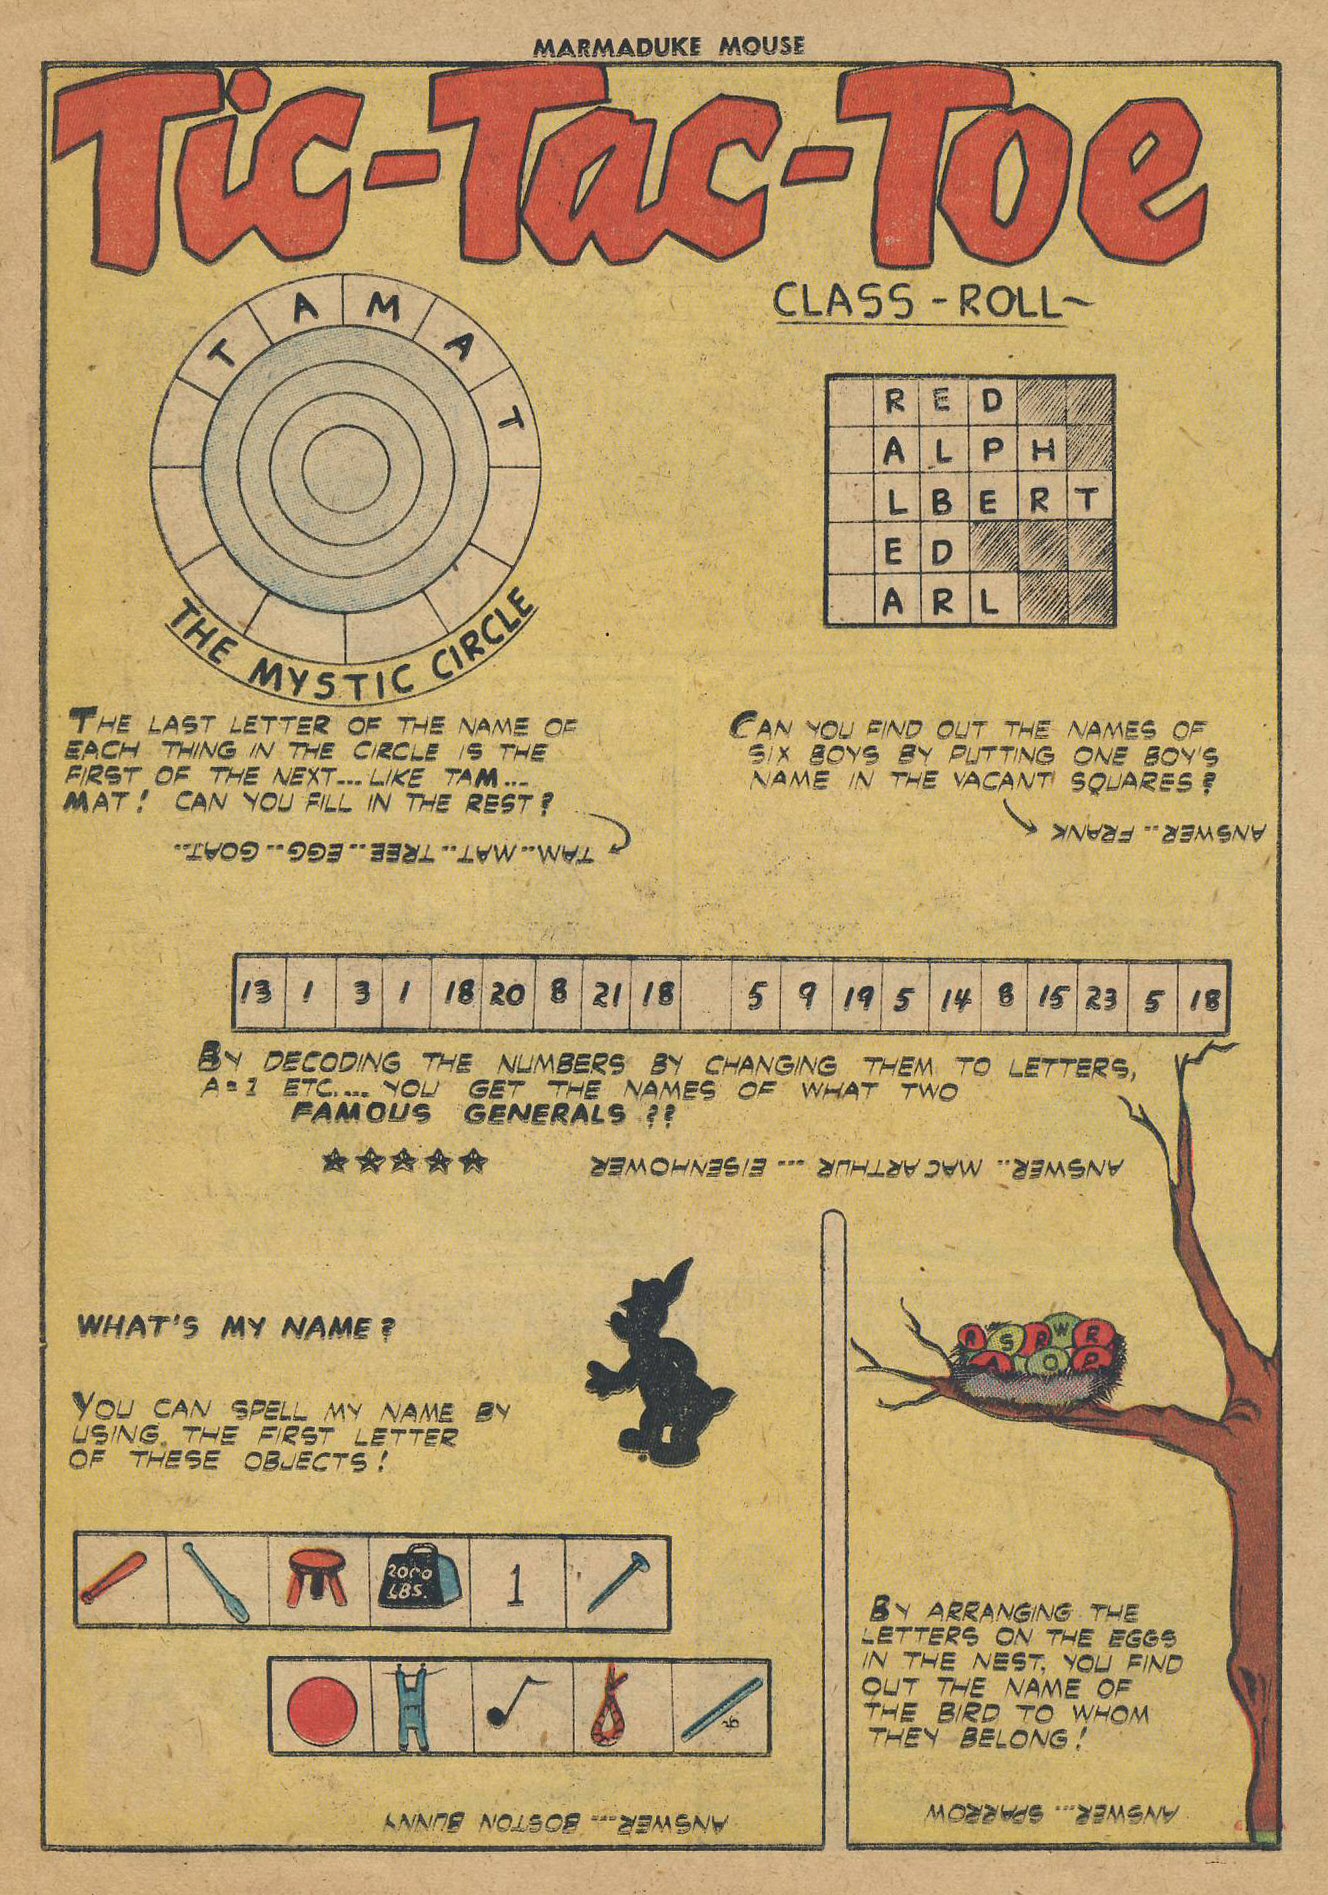 MARMADUKE MOUSE
Tic-Tac-Toe
T A M A T
THE MYSTIC CIRCLE
THE LAST LETTER OF THE NAME OF
EACH THING IN THE CIRCLE IS THE
FIRST OF THE NEXT... LIKE TAM...
MAT! CAN YOU FILL IN THE REST?
TAM... MAT... TREE... EGG... GOAT...
CLASS - ROLL~
R E D
A L P H
L B E R T
E D
A R L
CAN YOU FIND OUT THE NAMES OF
SIX BOYS BY PUTTING ONE BOY'S
NAME IN THE VACANT SQUARES?
ANSWER... FRANK
13 1 3 1 18 20 8 21 18 5 9 19 5 14 8 15 23 5 18
BY DECODING THE NUMBERS BY CHANGING THEM TO LETTERS,
A=1 ETC.... YOU GET THE NAMES OF WHAT TWO
FAMOUS GENERALS??
ANSWER... MAC ARTHUR ... EISENHOWER
WHAT'S MY NAME?
YOU CAN SPELL MY NAME BY
USING THE FIRST LETTER
OF THESE OBJECTS!
2000
LBS.
1
ANSWER.... BOSTON BUNNY
R S R W R
A O P
BY ARRANGING THE
LETTERS ON THE EGGS
IN THE NEST, YOU FIND
OUT THE NAME OF
THE BIRD TO WHOM
THEY BELONG!
ANSWER... SPARROW